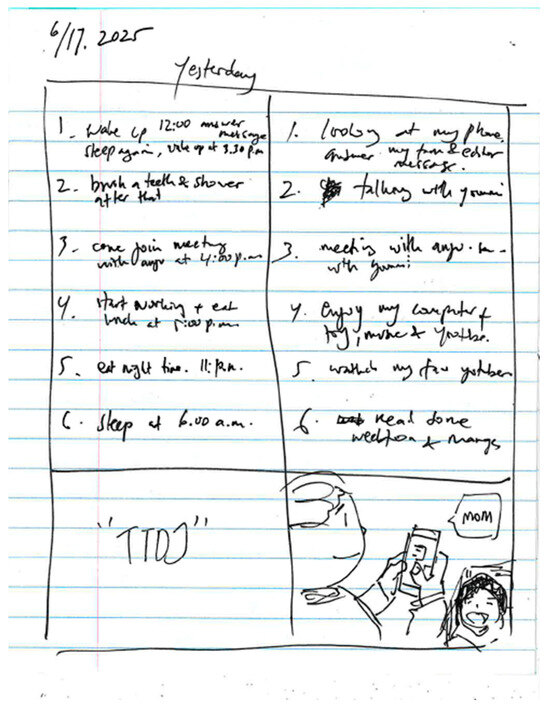 6/17. 2025
Yesterday
1. wake up 12:00 answer
message
sleep again, wake up at 3.30 p.m
2. brush a teeth & shower
after that
3. come join meeting
with at 4:00 p.m
4. start working & eat
lunch at 5:00 p.m.
5. eat night time. 11: p.m.
6. sleep at 6.00 a.m.
"TTDJ"
1. looking at my phone
answer my & editor
message.
2. talking with
3. meeting with
with
4. enjoy my computer &
toy, movie & youtube.
5. watched my fav youtuber
6. read some
webtoon & manga
MOM